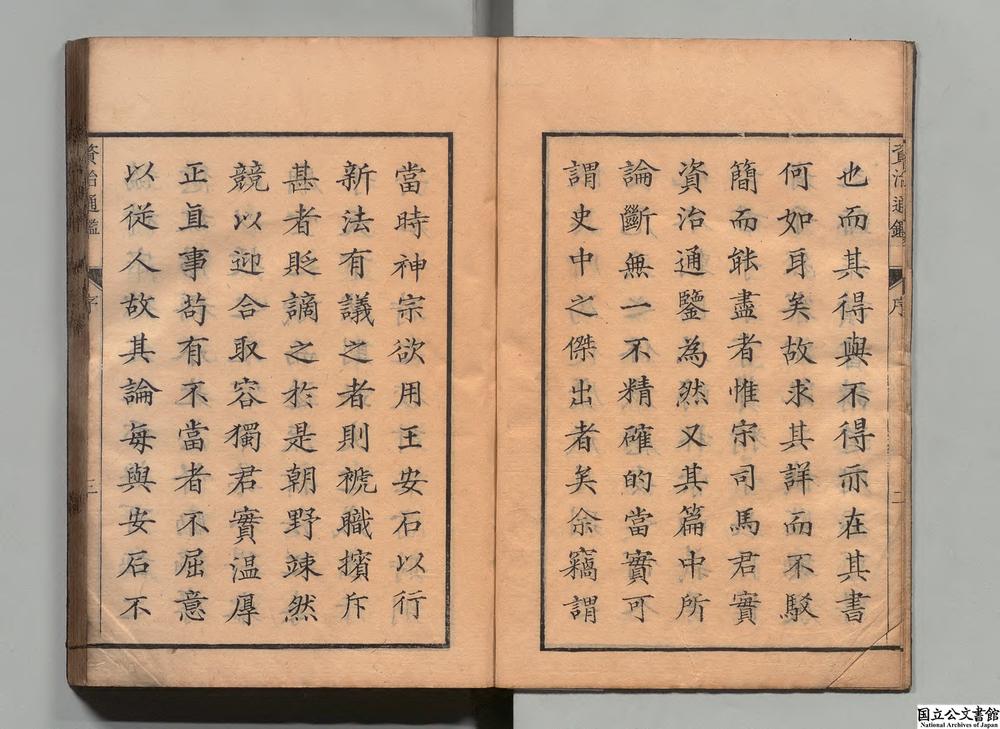 資治通鑑
序
二
也而其得與不得亦在其書
何如耳矣故求其詳而不駁
簡而能盡者惟宋司馬君實
資治通鑒為然又其篇中所
論斷無一不精確的當實可
謂史中之傑出者矣余竊謂
當時神宗欲用王安石以行
新法有議之者則褫職擯斥
甚者貶謫之於是朝野竦然
競以迎合取容獨君實温厚
正直事苟有不當者不屈意
以從人故其論每與安石不
資治通鑑
序
三
国立公文書館
National Archives of Japan